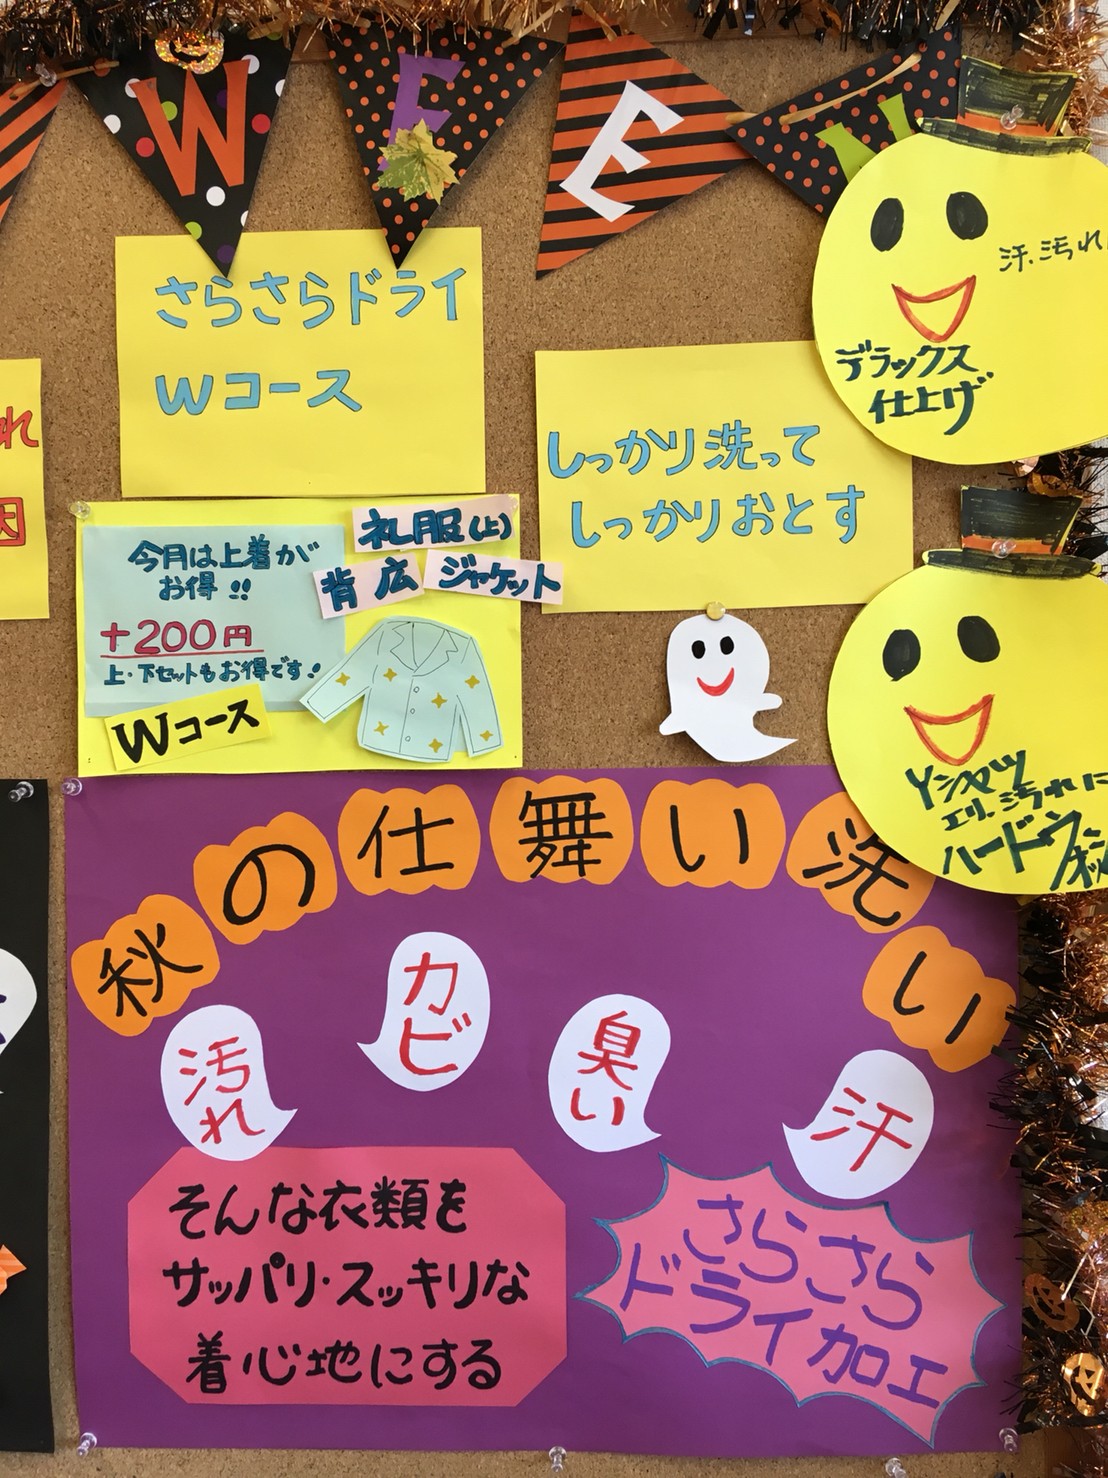 W
E
E
さらさらドライ
Wコース
汗、汚れ
デラックス
仕上げ
れ
因
しっかり洗って
しっかりおとす
今月は上着が
お得!!
+200円
上・下セットもお得です!
Wコース
礼服(上)
背広
ジャケット
Yシャツ
エリ、汚れに
ハードウ
秋の仕舞い洗い
汚れ
カビ
臭い
汗
そんな衣類を
サッパリ・スッキリな
着心地にする
さらさら
ドライ加工